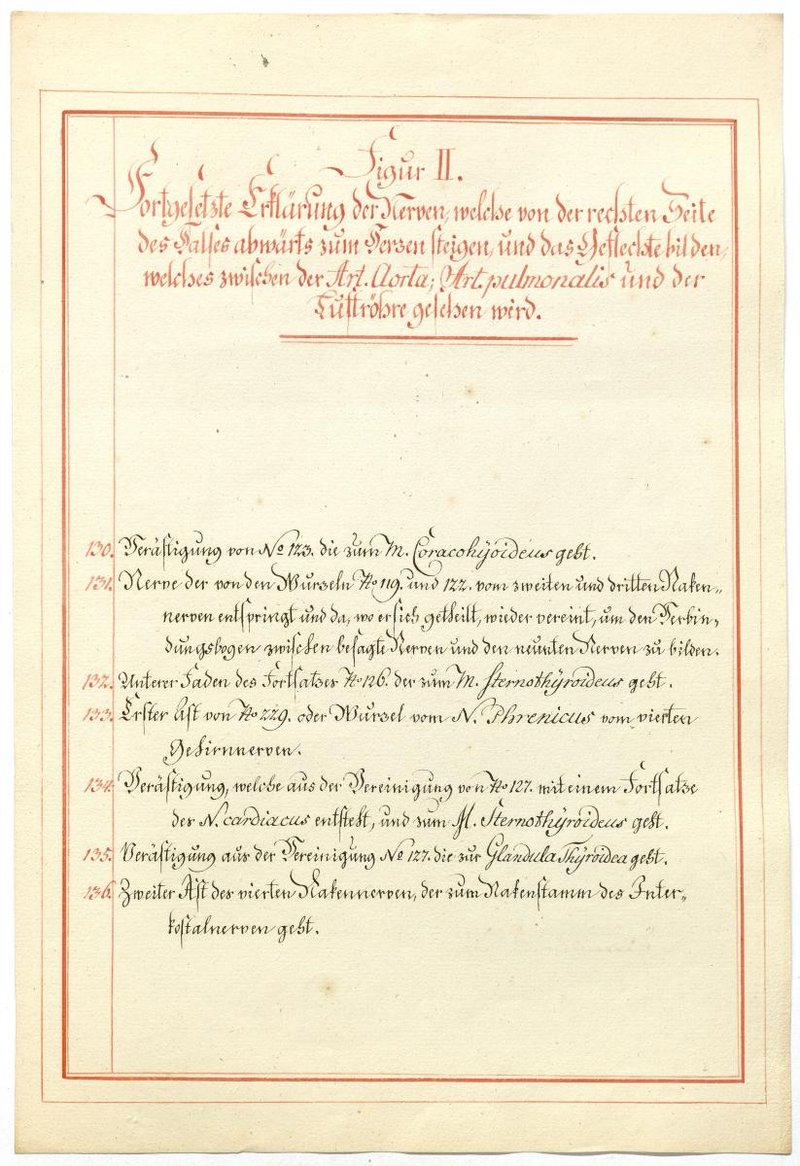 Figur II.
Fortgesetzte Erklärung der Nerven, welche von der rechten Seite
des Halses abwärts zum Herzen steigen, und das Geflechte bilden,
welches zwischen der Art. Aorta; Art. pulmonalis und der
Luftröhre gesehen wird.
130. Verästigung von No 123. die zum M. Coracohÿoideus geht.
131. Nerve der von den Wurzeln No 119. und 122. vom zweiten und dritten Naken-
nerven entspringt und da, wo er sich getheilt, wieder vereint, um den Verbin-
dungsbogen zwischen besagte Nerven und den neunten Nerven zu bilden.
132. Unterer Faden des Fortsatzes No 126. der zum M. Sternothÿroideus geht.
133. Erster Ast von No 229. oder Wurzel vom N. Phrenicus vom vierten
Gehirnnerven.
134. Verästigung, welche aus der Vereinigung von No 127. mit einem Fortsatze
des N. cardiacus entsteht, und zum M. Sternothÿroideus geht.
135. Verästigung aus der Vereinigung No 127. die zur Glandula Thÿroidea geht.
136. Zweiter Ast des vierten Nakennerven, der zum Nakenstamm des Inter-
kostalnerven geht.